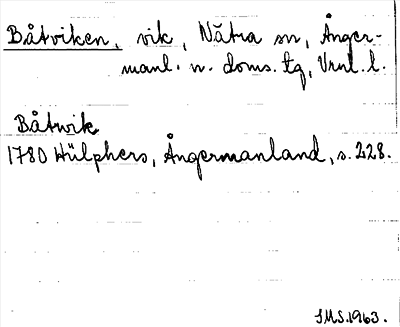 Båtviken, vik, Nätra sn, Ånger-
manl. n. doms. tg, Vrnl. l.
Båtwik
1780 Hülphers, Ångermanland, s. 228.
IMS. 1963.